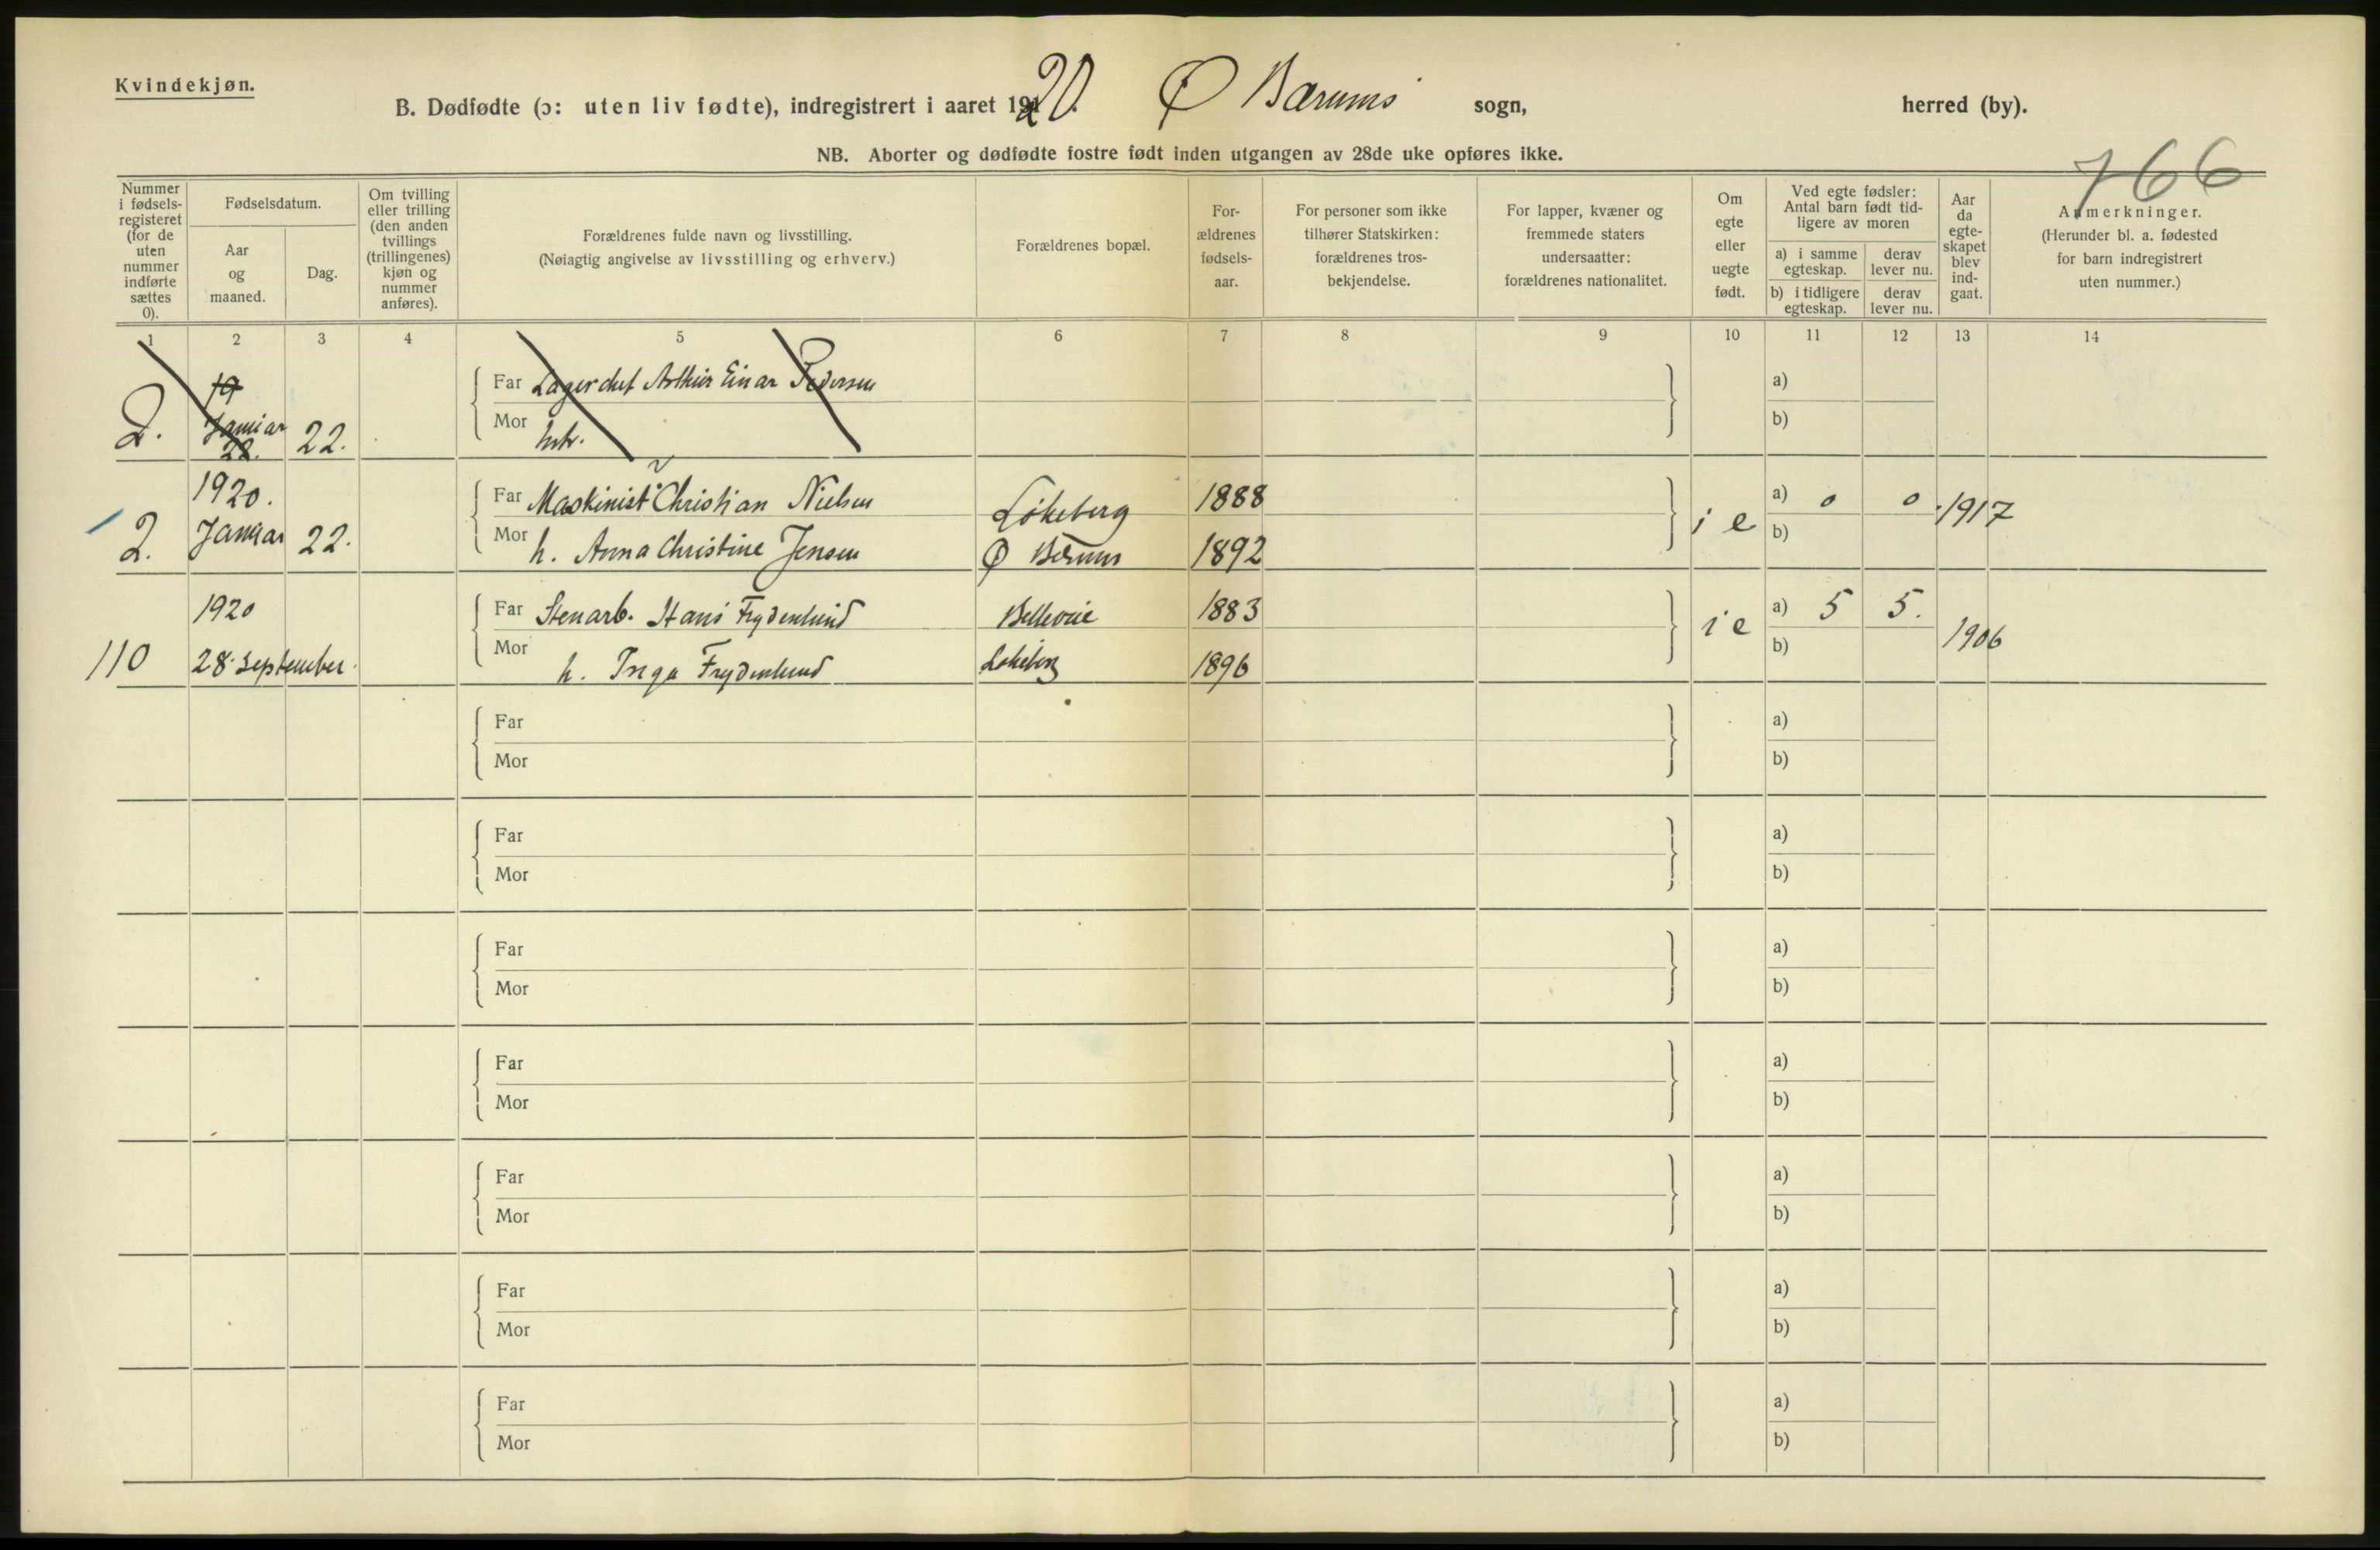 Kvindekjøn.
B. Dødfødte (ɔ: uten liv fødte), indregistrert i aaret 1920. Ø Bærums sogn, herred (by).
NB. Aborter og dødfødte fostre født inden utgangen av 28de uke opføres ikke.
766
Nummer i fødsels-registeret (for de uten nummer indførte sættes 0).
Fødselsdatum.
Aar og maaned.
Dag.
Om tvilling eller trilling (den anden tvillings (trillingenes) kjøn og nummer anføres).
Forældrenes fulde navn og livsstilling.
(Nøiagtig angivelse av livsstilling og erhverv.)
Forældrenes bopæl.
For-ældrenes fødsels-aar.
For personer som ikke tilhører Statskirken: forældrenes tros-bekjendelse.
For lapper, kvæner og fremmede staters undersaatter: forældrenes nationalitet.
Om egte eller uegte født.
Ved egte fødsler: Antal barn født tid-ligere av moren
a) i samme egteskap. derav lever nu.
b) i tidligere egteskap. derav lever nu.
Aar da egte-skapet blev ind-gaat.
Anmerkninger.
(Herunder bl. a. fødested for barn indregistrert uten nummer.)
1 2 3 4 5 6 7 8 9 10 11 12 13 14
19
Far Lagerchef Arthur Einar Pedersen a)
2. Januar 22. 22. Mor b)
1920. Far Maskinist Christian Nielsen Løkeberg 1888 a) 0 0 1917
2. Januar 22. Mor h. Anna Christine Jensen Ø Bærum 1892 i e b)
1920 Far Stenarb. Hans Frydenlund Bellevue 1883 i e a) 5 5. 1906
110 28. September. Mor h. Inga Frydenlund Løkeberg 1896 b)
Far a)
Mor b)
Far a)
Mor b)
Far a)
Mor b)
Far a)
Mor b)
Far a)
Mor b)
Far a)
Mor b)
Far a)
Mor b)